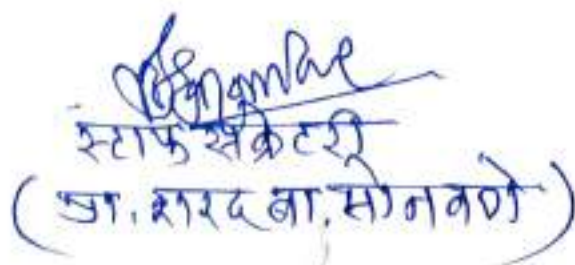 स्टाफ सेक्रेटरी
(प्रा. शरद बा. सोनवणे)